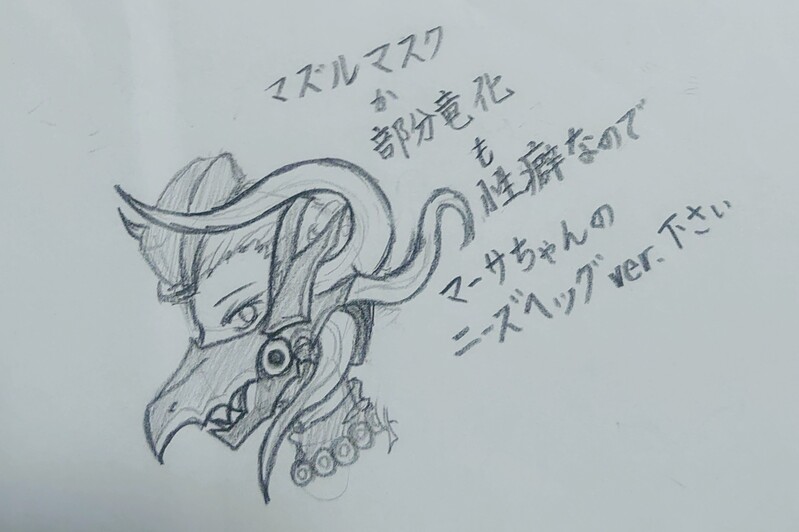 マズルマスク
か
部分竜化
も
性癖なので
マーサちゃんの
ニーズヘッグver.下さい